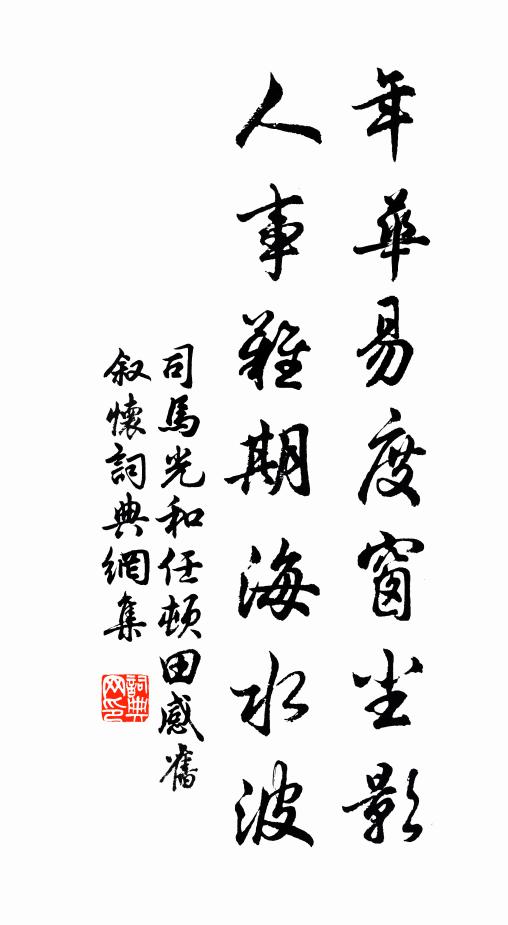 年華易度窗尘影
人事難期海水波
司馬光和任頓田感舊
叙懷詞典網集
詞典网印